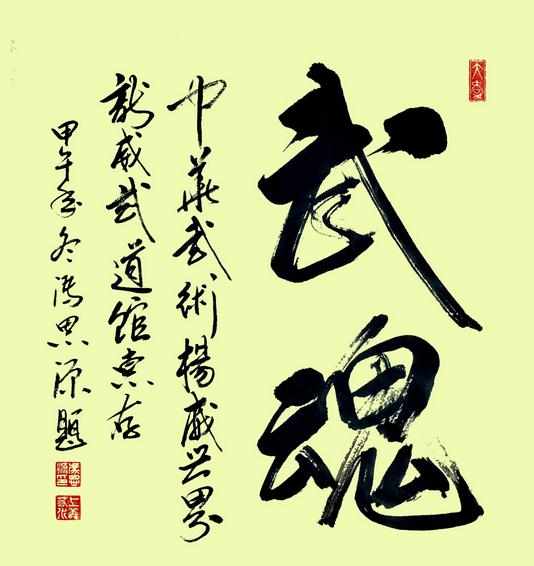 武魂
中華武術楊威世界
龍威武道館惠存
甲午年冬馮思源題